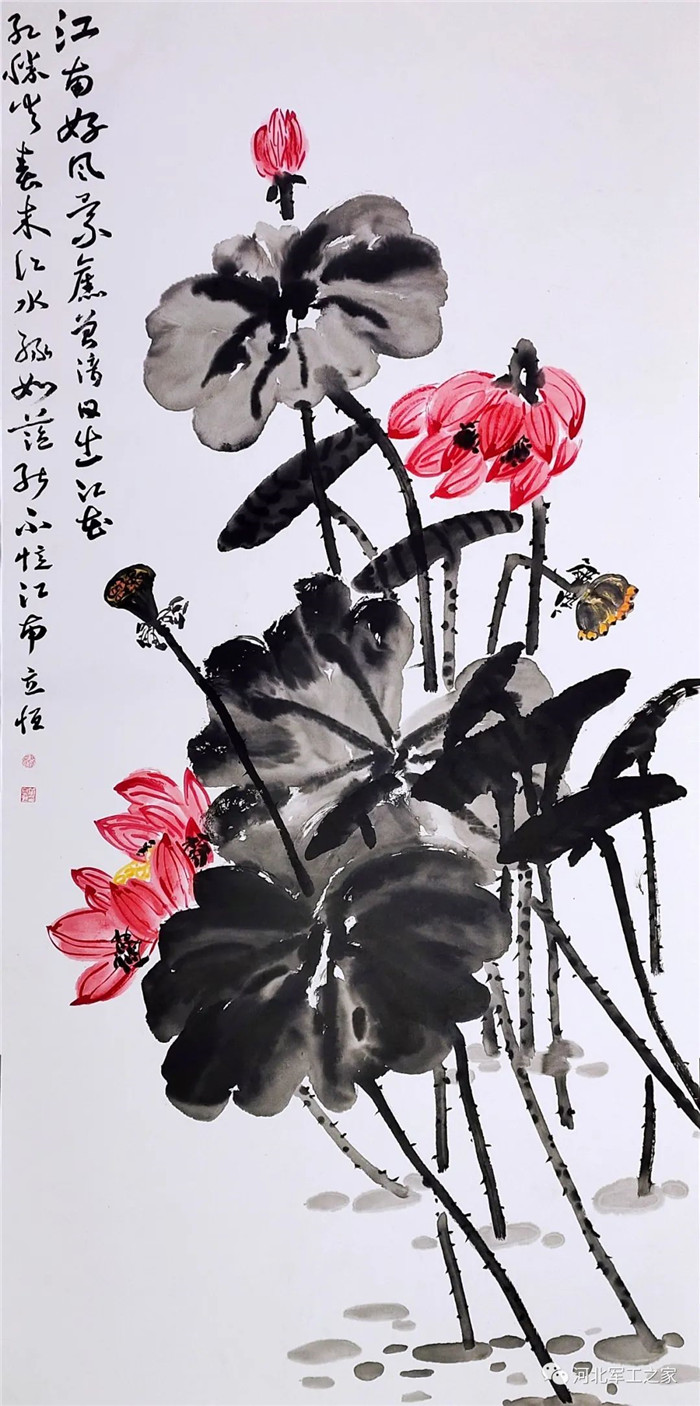 江南好风景舊曾谙日出江花
红勝火春来江水绿如蓝能不忆江南立恒
河北军工之家